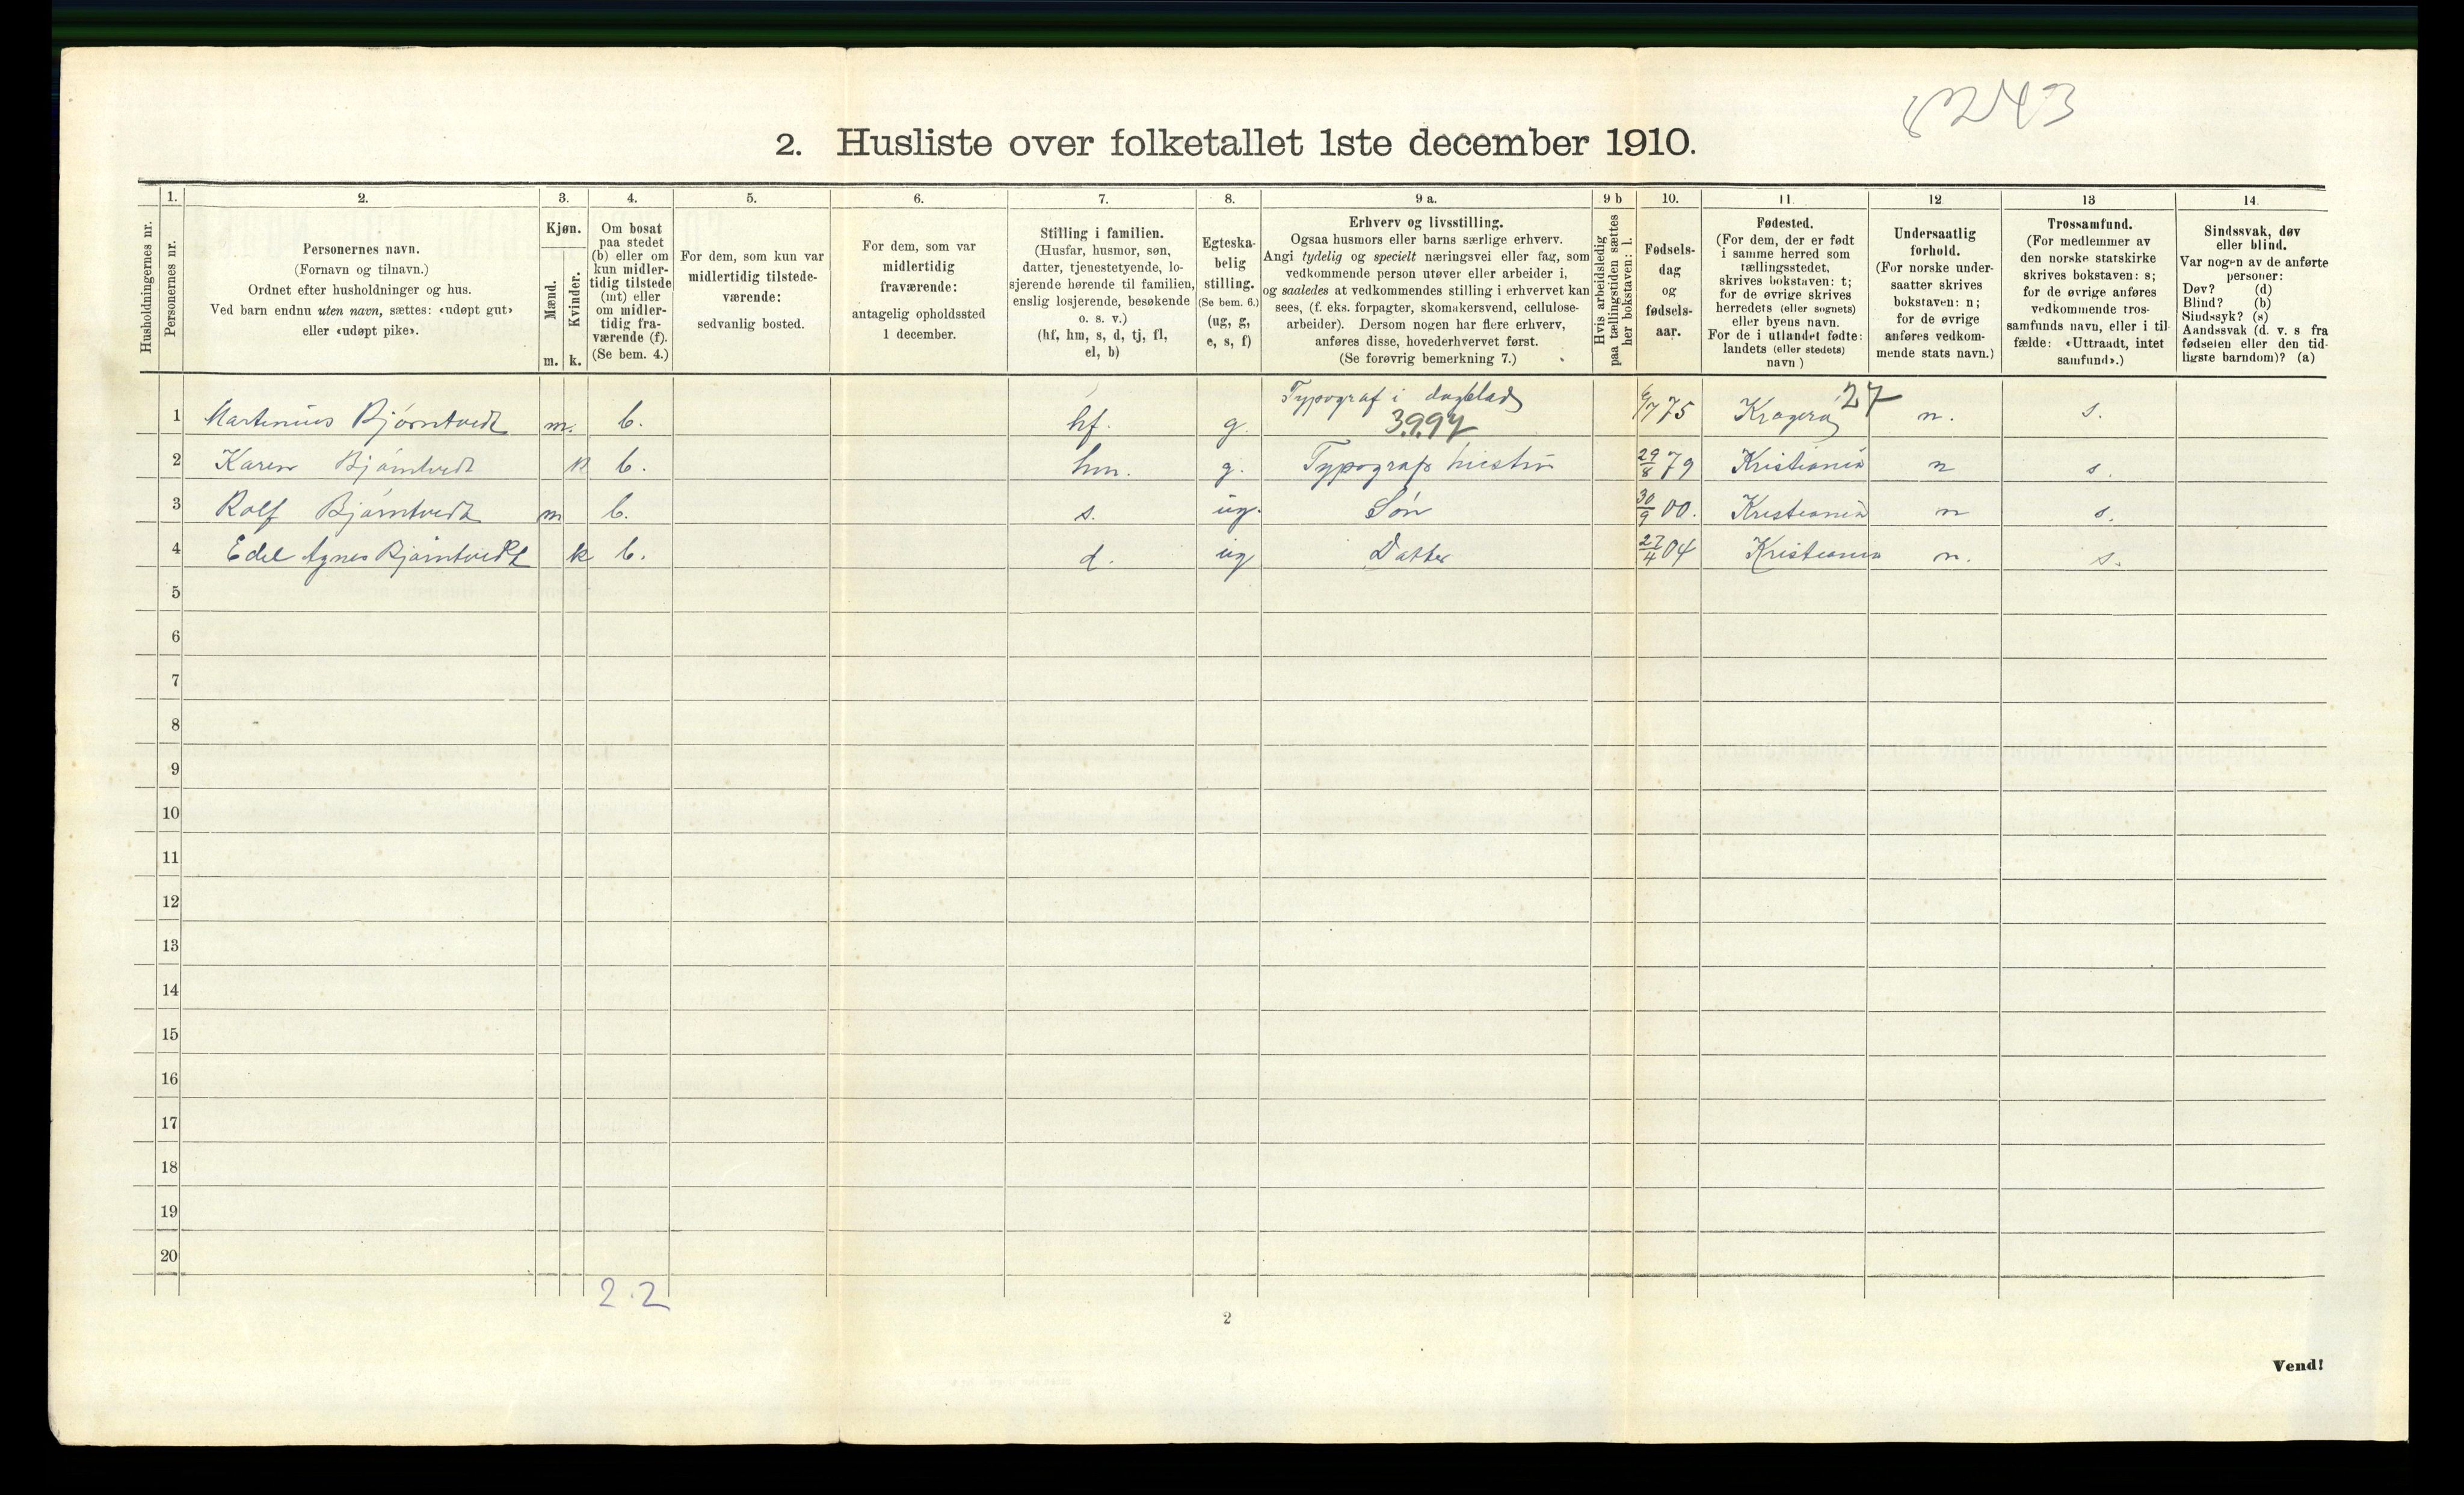 8243
2. Husliste over folketallet 1ste december 1910.
Husholdningernes nr.
1.
Personernes nr.
2.
Personernes navn.
(Fornavn og tilnavn.)
Ordnet efter husholdninger og hus.
Ved barn endnu uten navn, sættes: «udøpt gut»
eller «udøpt pike».
3.
Kjøn.
Mænd.
Kvinder.
m. k.
4.
Om bosat
paa stedet
(b) eller om
kun midler-
tidig tilstede
(mt) eller
om midler-
tidig fra-
værende (f).
(Se bem. 4.)
5.
For dem, som kun var
midlertidig tilstede-
værende:
sedvanlig bosted.
6.
For dem, som var
midlertidig
fraværende:
antagelig opholdssted
1 december.
7.
Stilling i familien.
(Husfar, husmor, søn,
datter, tjenestetyende, lo-
sjerende hørende til familien,
enslig losjerende, besøkende
o. s. v.)
(hf, hm, s, d, tj, fl,
el, b)
8.
Egteska-
belig
stilling.
(Se bem. 6.)
(ug, g,
e, s, f)
9 a.
Erhverv og livsstilling.
Ogsaa husmors eller barns særlige erhverv.
Angi tydelig og specielt næringsvei eller fag, som
vedkommende person utøver eller arbeider i,
og saaledes at vedkommendes stilling i erhvervet kan
sees, (f. eks. forpagter, skomakersvend, cellulose-
arbeider). Dersom nogen har flere erhverv,
anføres disse, hovederhvervet først.
(Se forøvrig bemerkning 7.)
9 b
Hvis arbeidsledig
paa tællingstiden sættes
her bokstaven: l.
10.
Fødsels-
dag
og
fødsels-
aar.
11.
Fødested.
(For dem, der er født
i samme herred som
tællingsstedet,
skrives bokstaven: t;
for de øvrige skrives
herredets (eller sognets)
eller byens navn.
For de i utlandet fødte:
landets (eller stedets)
navn)
12
Undersaatlig
forhold.
(For norske under-
saatter skrives
bokstaven: n;
for de øvrige
anføres vedkom-
mende stats navn.)
13
Trossamfund.
(For medlemmer av
den norske statskirke
skrives bokstaven: s;
for de øvrige anføres
vedkommende tros-
samfunds navn, eller i til-
fælde: «Uttraadt, intet
samfund».)
14.
Sindssvak, døv
eller blind.
Var nogen av de anførte
personer:
Døv? (d)
Blind? (b)
Sindssyk? (s)
Aandssvak (d. v. s fra
fødselen eller den tid-
ligste barndom)? (a)
1 Martinius Bjørntvedt m. b. hf. g. Typograf i dagblad 3997 6/7 75 Kragerø 27 n. s.
2 Karen Bjørntvedt k b. hm. g. Typograf hustru 29/8 79 Kristiania n s.
3 Rolf Bjørntvedt m b. s. ug. Søn 30/9 00. Kristiania n s.
4 Edel Agnes Bjørntvedt k b. d. ug Datter 27/4 04 Kristiania n. s.
5
6
7
8
9
10
11
12
13
14
15
16
17
18
19
20
2.2
2
Vend!